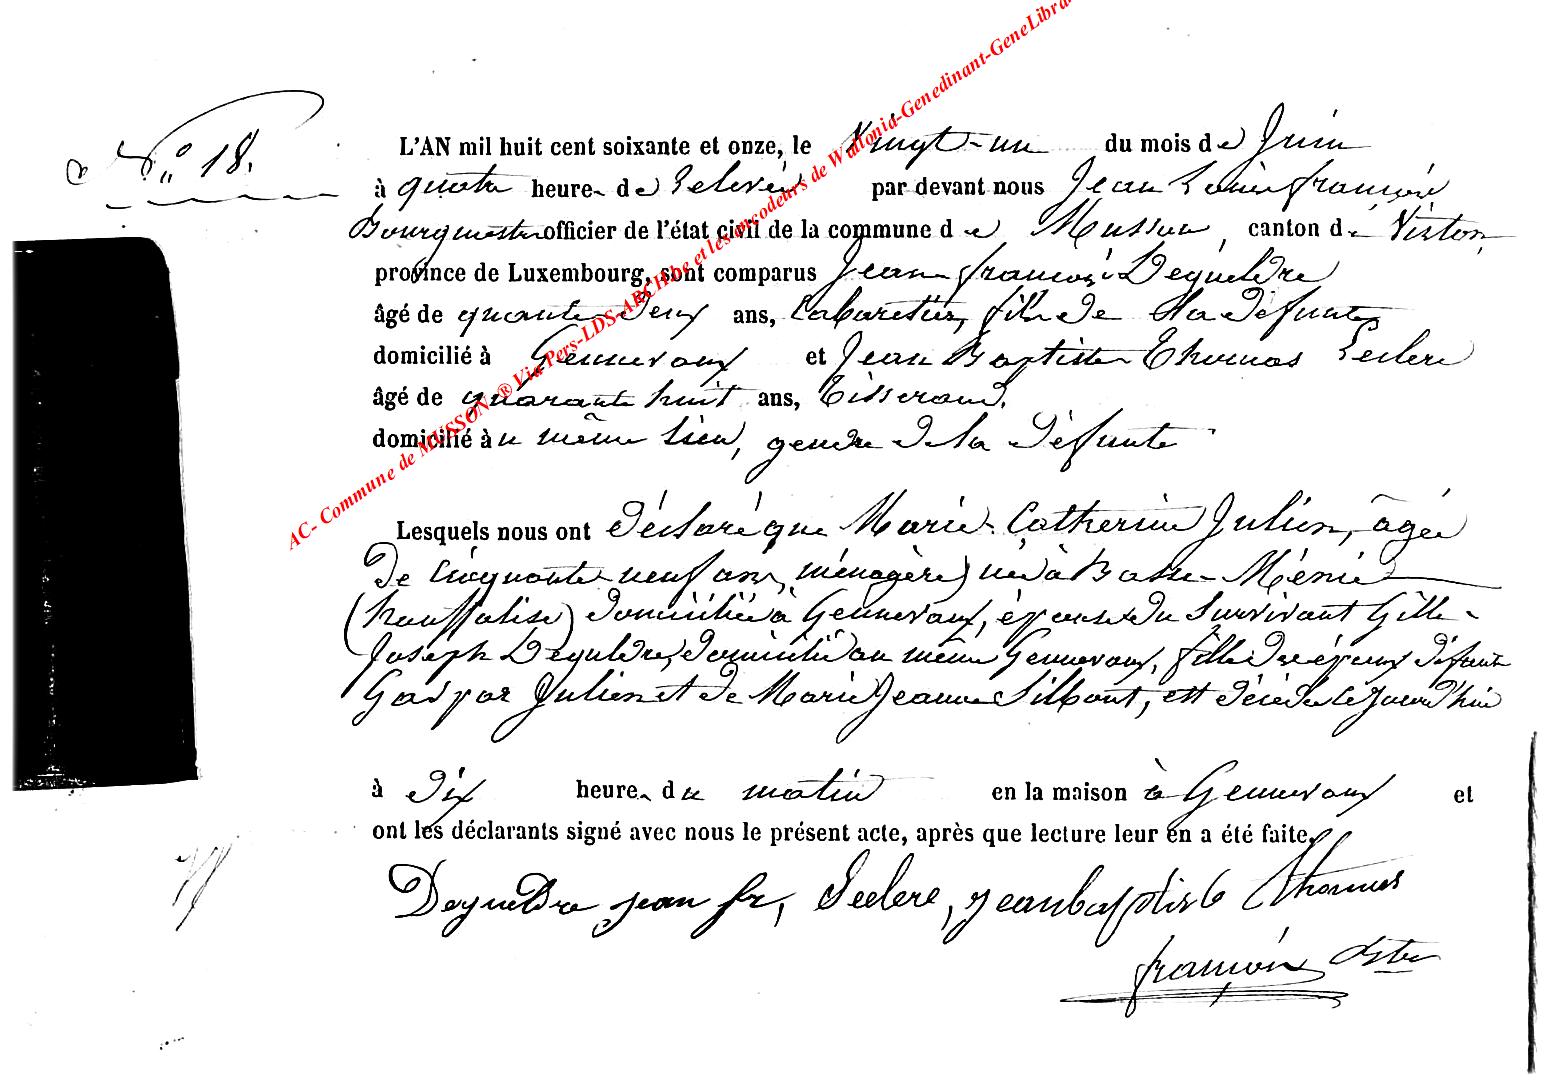 N° 18.
L'AN mil huit cent soixante et onze, le Vingt-un du mois de Juin
à quatre heures de relevée par devant nous Jean Louis françois
Bourgmestre officier de l'état civil de la commune de Musson, canton de Virton,
province de Luxembourg, sont comparus Jean françois Dequeldre
âgé de quarante deux ans, Cabaretier, fils de la défunte
domicilié à Gennevaux et Jean Baptiste Thomas Leclere
âgé de quarante huit ans, Tisserand,
domicilié au même lieu, gendre de la défunte
Lesquels nous ont déclaré que Marie-Catherine Julien, âgée
de cinquante-neuf ans, ménagère, née à Basse-
(houffalise) domiciliée à Gennevaux, épouse du Survivant Gille-
Joseph Dequeldre, domicilié au même Gennevaux, fille des époux défunts
Gaspar Julien et de Marie Jeanne, est décédée ce jourd'hui
à dix heures du matin en la maison à Gennevaux et
ont les déclarants signé avec nous le présent acte, après que lecture leur en a été faite.
Dequeldre jean fr, Leclere, jean baptiste thomas
françois
AC- Commune de MUSSON ® Via Pers-LDS-ARCH.be et les encodeurs de Wallonia-Genedinant-GeneLibra